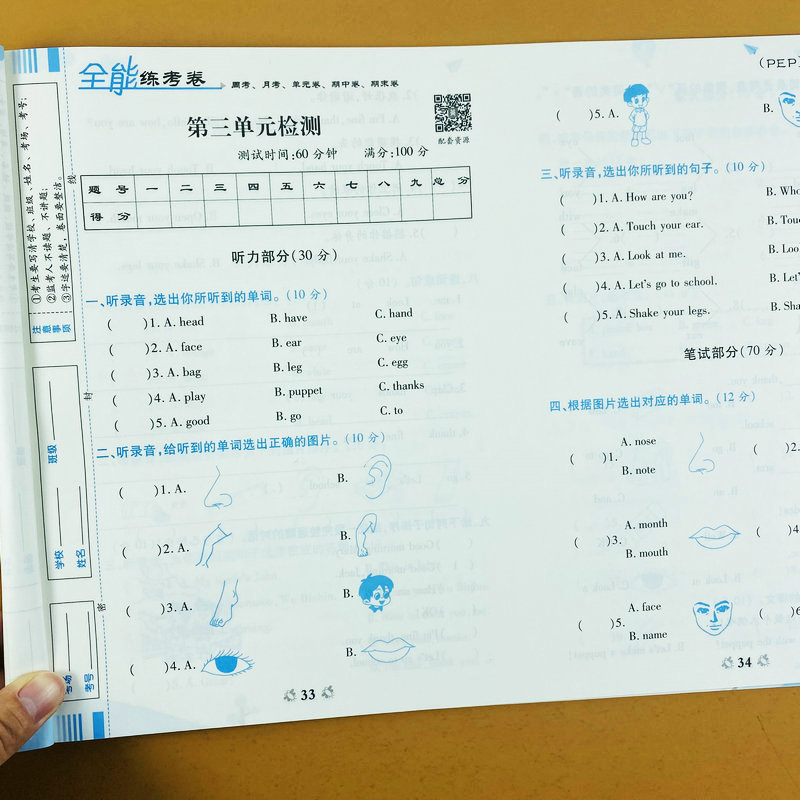 全能练考卷
周考、月考、单元卷、期中卷、期末卷
第三单元检测
配套资源
测试时间:60分钟 满分:100分
题号 一 二 三 四 五 六 七 八 九 总分
得分
听力部分(30分)
一、听录音,选出你所听到的单词。(10分)
( )1. A. head B. have C. hand
( )2. A. face B. ear C. eye
( )3. A. bag B. leg C. egg
( )4. A. play B. puppet C. thanks
( )5. A. good B. go C. to
二、听录音,给听到的单词选出正确的图片。(10分)
( )1. A. B.
( )2. A. B.
( )3. A. B.
( )4. A. B.
33
(PEP
( )5. A. B.
三、听录音,选出你所听到的句子。(10分)
( )1. A. How are you? B. Who
( )2. A. Touch your ear. B. Tou
( )3. A. Look at me. B. Loo
( )4. A. Let's go to school. B. Let'
( )5. A. Shake your legs. B. Sha
笔试部分(70分)
四、根据图片选出对应的单词。(12分)
( )1. A. nose B. note
( )2.
( )3. A. month B. mouth
( )4
( )5. A. face B. name
( )6
34
注意事项
①考生要写清学校、班级、姓名、考场、考号;
②监考人不读题、不讲题;
③字迹要清楚,卷面要整洁。
班级
学校
姓名
考场
考号
线
封
密